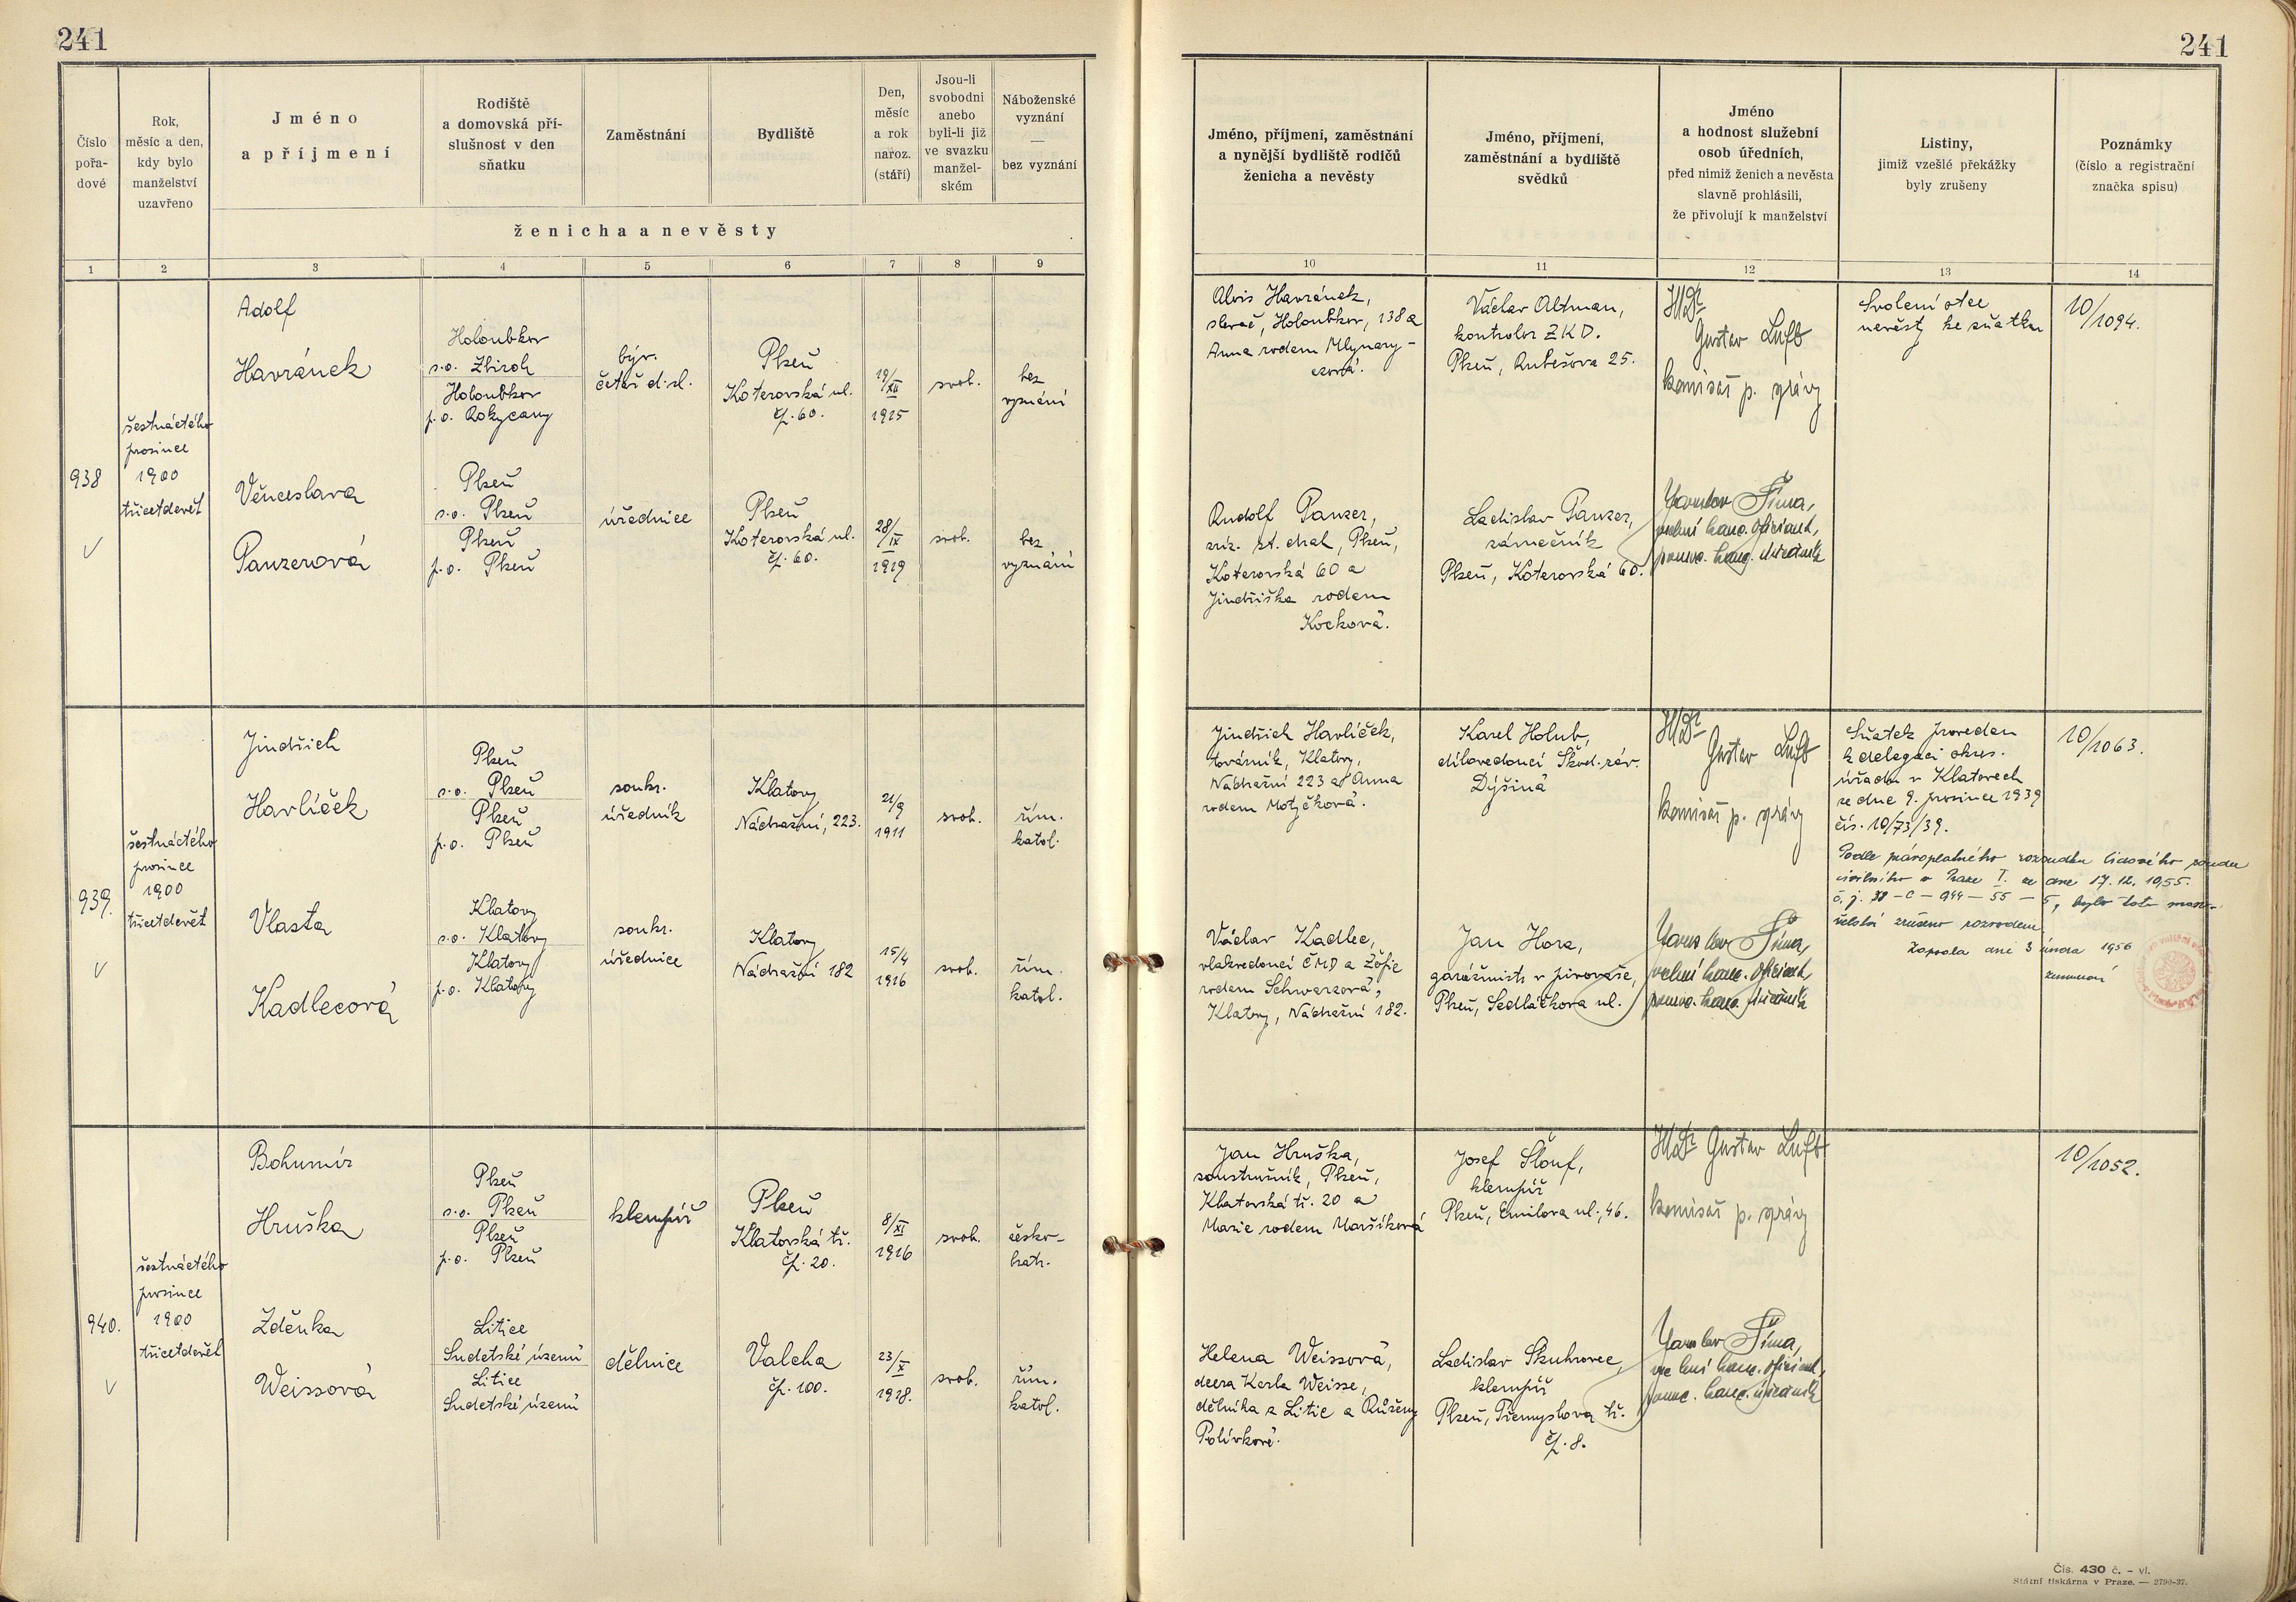 241
241
Číslo
pořa-
dové
Rok,
měsíc a den,
kdy bylo
manželství
uzavřeno
Jméno
a příjmení
Rodiště
a domovská pří-
slušnost v den
sňatku
Zaměstnání
Bydliště
Den,
měsíc
a rok
naroz.
(stáří)
Jsou-li
svobodni
anebo
byli-li již
ve svazku
manžel-
ském
Náboženské
vyznání
—
bez vyznání
ženicha a nevěsty
Jméno, příjmení, zaměstnání
a nynější bydliště rodičů
ženicha a nevěsty
Jméno, příjmení,
zaměstnání a bydliště
svědků
Jméno
a hodnost služební
osob úředních,
před nimiž ženich a nevěsta
slavně prohlásili,
že přivolují k manželství
Listiny,
jimiž vzešlé překážky
byly zrušeny
Poznámky
(číslo a registrační
značka spisu)
1 2 3 4 5 6 7 8 9 10 11 12 13 14
938
šestnáctého
prosince
1900
třicetdevět
Adolf
Havránek
Holoubkov
s.o. Zbiroh
Holoubkov
p.o. Rokycany
býv.
četař d.sl.
Plzeň
Koterovská ul.
čp. 60.
19/XII
1915
svob.
bez
vyznání
Alois Havránek,
slevač, Holoubkov, 138 a
Anna rodem Mlynary-
czová.
Václav Altman,
kontrolor ZKD.
Plzeň, Rubešova 25.
JUDr
Gustav Luft
komisař p. správy
Svolení otce
nevěsty ke sňatku
10/1094.
Věnceslava
Panzerová
Plzeň
s.o. Plzeň
Plzeň
p.o. Plzeň
úřednice
Plzeň
Koterovská ul.
čp. 60.
28/IX
1919
svob.
bez
vyznání
Rudolf Panzer,
zříz. st. drah, Plzeň,
Koterovská 60 a
Jindřiška rodem
Kocková.
Ladislav Panzer,
zámečník
Plzeň, Koterovská 60.
Jaroslav Šíma,
vrchní kanc. oficiant,
pomoc. kanc. úředník
939.
šestnáctého
prosince
1900
třicetdevět
Jindřich
Havlíček
Plzeň
s.o. Plzeň
Plzeň
p.o. Plzeň
soukr.
úředník
Klatovy
Nádražní, 223.
21/9
1911
svob.
řím.
katol.
Jindřich Havlíček,
továrník, Klatovy,
Nádražní 223 a Anna
rodem Motyčková.
Karel Holub,
dílovedoucí Škod. záv.
Dýšina
JUDr
Gustav Luft
komisař p. správy
Sňatek proveden
z delegaci okres.
úřadu v Klatovech
ze dne 9. prosince 1939
čís. 10/73/39.
10/1063.
Podle pravoplatného rozsudku lidového soudu
civilního v Praze I. ze dne 17.12.1955.
bylo toto man-
želství zrušeno rozvodem.
Zapsala dne 3 února 1956
Vlasta
Kadlecová
Klatovy
s.o. Klatovy
Klatovy
p.o. Klatovy
soukr.
úřednice
Klatovy
Nádražní 182
15/4
1916
svob.
řím.
katol.
Václav Kadlec,
vlakvedoucí ČMD a Žofie
rodem Schwarzová,
Klatovy, Nádražní 182.
Jan Hora,
garážmistr v pivovaře,
Plzeň, Sedláčkova ul.
Jaroslav Šíma,
vrchní kanc. oficiant,
pomoc. kanc. úředník
940.
šestnáctého
prosince
1900
třicetdevět
Bohumír
Hruška
Plzeň
s.o. Plzeň
Plzeň
p.o. Plzeň
klempíř
Plzeň
Klatovská tř.
čp. 20.
8/XI
1916
svob.
česko-
bratr.
Jan Hruška,
soustružník, Plzeň,
Klatovská tř. 20 a
Marie rodem Maršíková
Josef Šlouf,
klempíř
Plzeň, Emilova ul., 46.
JUDr Gustav Luft
komisař p. správy
10/1052.
Zděnka
Weissová
Litice
Sudetské území
Litice
Sudetské území
dělnice
Valcha
čp. 100.
23/X
1918.
svob.
řím.
katol.
Helena Weissová,
dcera Karla Weisse,
dělníka z Litic a Růženy
Polívkové.
Ladislav Skuhrovec,
klempíř
Plzeň, Přemyslova tř.
čp. 8.
Jaroslav Šíma,
vrchní kanc. oficiant,
pomoc. kanc. úředník
Čís. 430 č. - vl.
Státní tiskárna v Praze. — 2790-37.